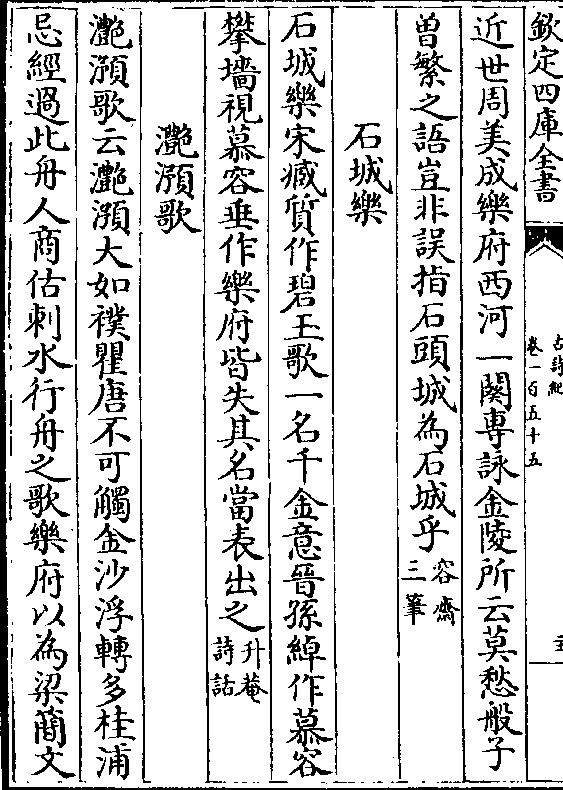 欽定四庫全書
古詩紀
卷一百五十五
近世周美成樂府西河一闋專詠金陵所云莫愁般子
曽繁之語豈非誤指石頭城為石城乎容齋三筆
石城樂
石城樂宋臧質作碧玉歌一名千金意晉孫綽作慕容
攀墻視慕容垂作樂府皆失其名當表出之升菴詩話
灧澦歌
灧澦歌云灧澦大如襆瞿唐不可觸金沙浮轉多桂浦
忌經過此舟人商估刺水行舟之歌樂府以為梁簡文